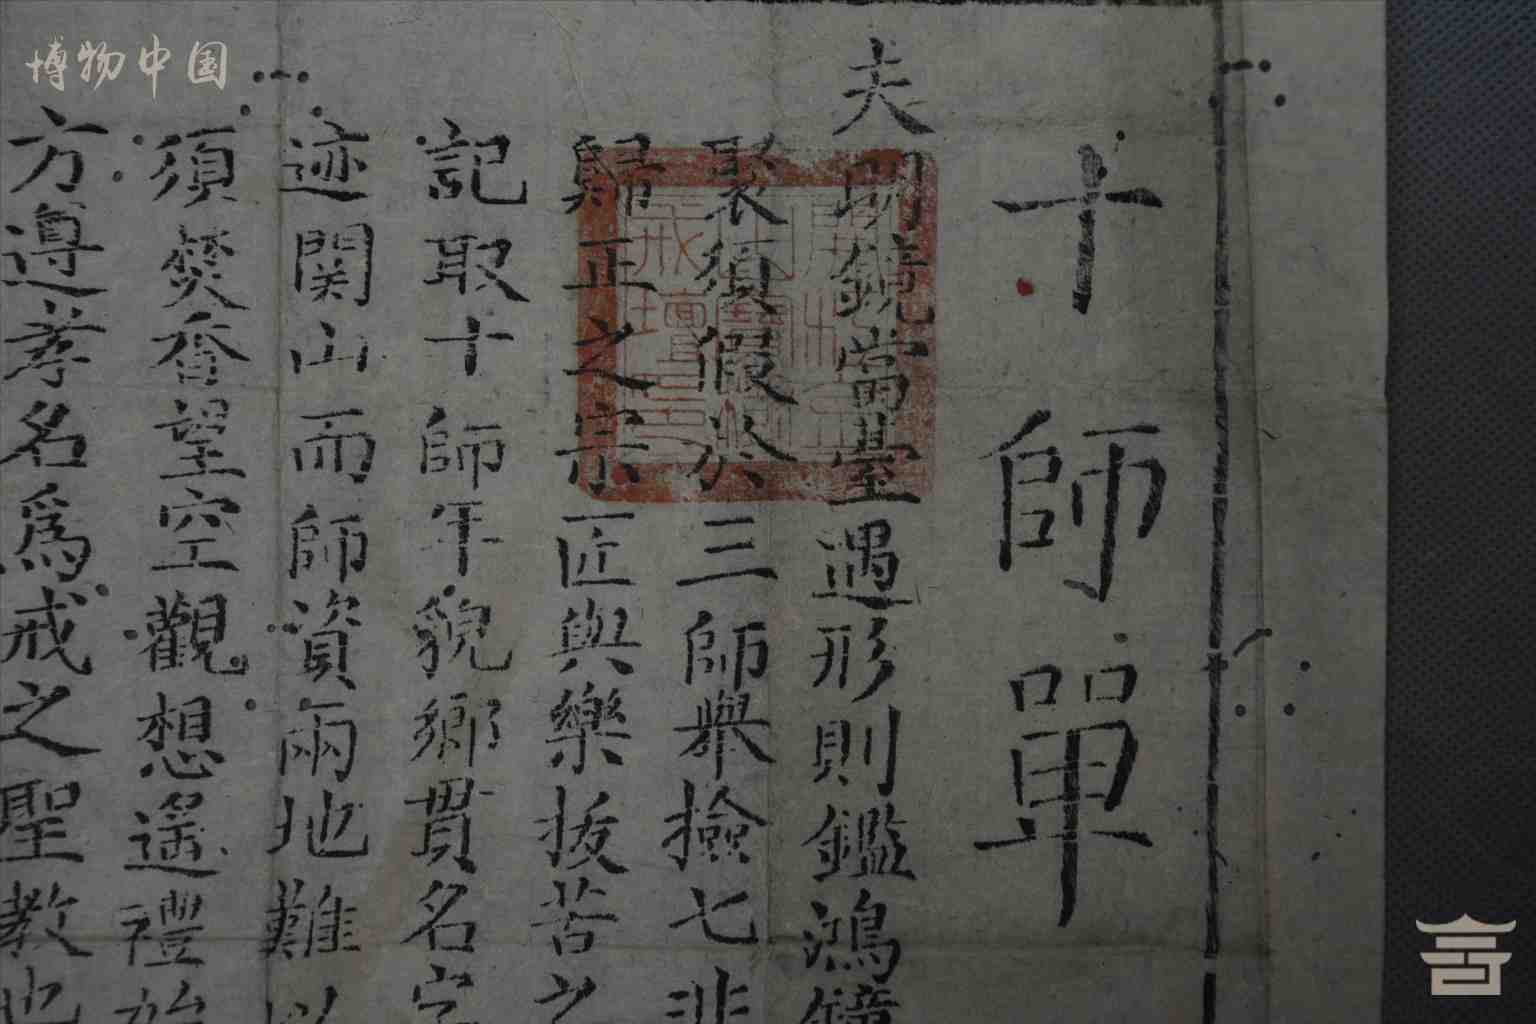 博物中国
十師單
夫明鏡當臺遇形則鑑鴻鐘
聚須假於三師舉撿七非
歸正之宗匠與樂拔苦之
記取十師年貌鄉貫名字
迹関山而師資兩地難以
須焚香望空觀想遥禮始
方遵孝名為戒之聖教也